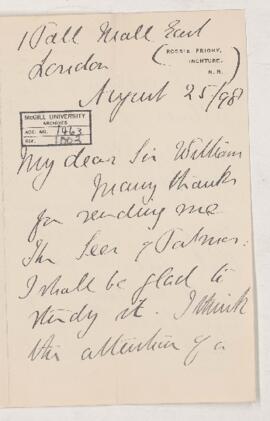 1 Pall Mall East
London
ROSSIE PRIORY,
INCHTURE,
N. B.
August 25/98
McGILL UNIVERSITY
ARCHIVES
ACC. NO. 1463
REF. 1002
My dear Sir William
Many thanks
for sending me
The Seer of Patmos:
I shall be glad to
study it. I think
the attention of a